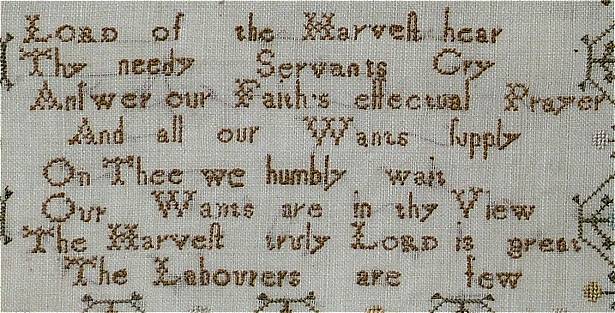 LORD of the Harveſt hear
Thy needy Servants Cry
Anſwer our Faith's effectual Prayer
And all our Wants ſupply
On Thee we humbly wait
Our Wants are in thy View
The Harveſt truly LORD is great
The Labourers are few